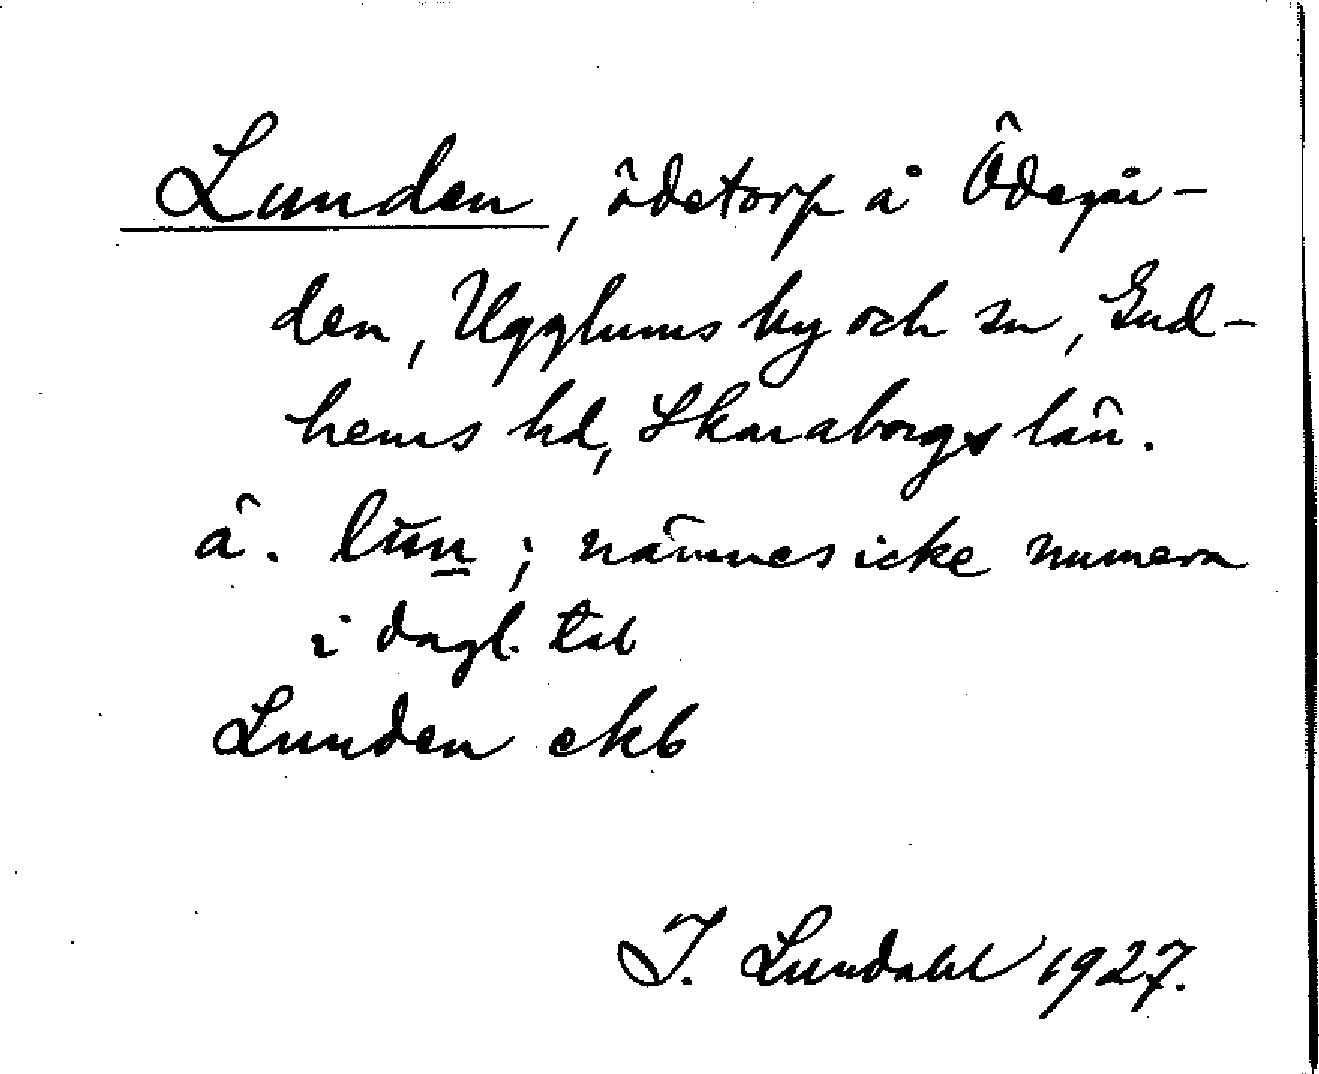 Lunden, ödetorp å Ödegår-
den, Ugglums by och sn, Gud-
hems hd, Skaraborgs län.
ä. lun; nämnes icke numera
i dagl. tal
Lunden ekb
I. Lundahl 1927.